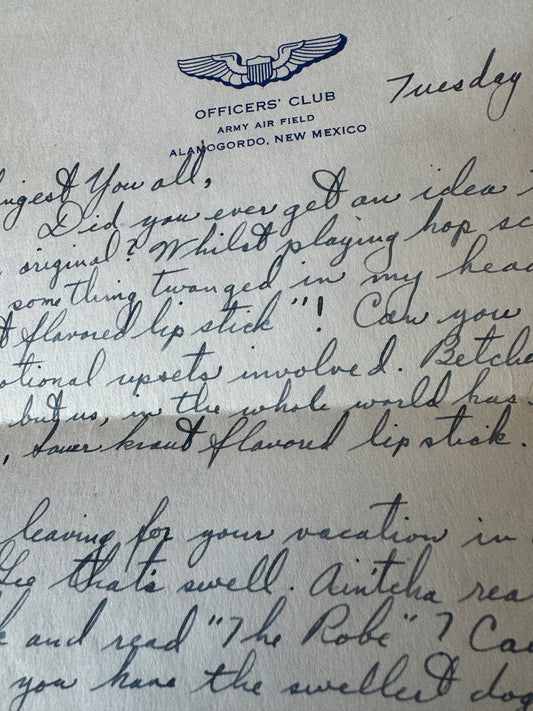 OFFICERS' CLUB
ARMY AIR FIELD
ALAMOGORDO, NEW MEXICO
Tuesday
You all,
Did you ever get an idea
original? Whilst playing hop sc
something twanged in my head
t flavored lip stick"! Can you
otional upsets involved. Betche
but us, in the whole world has
, sauer kraut flavored lip stick.
leaving for your vacation in
Gee that's swell. Ain'tcha rea
and read "The Robe"? Ca
you have the swellest dog